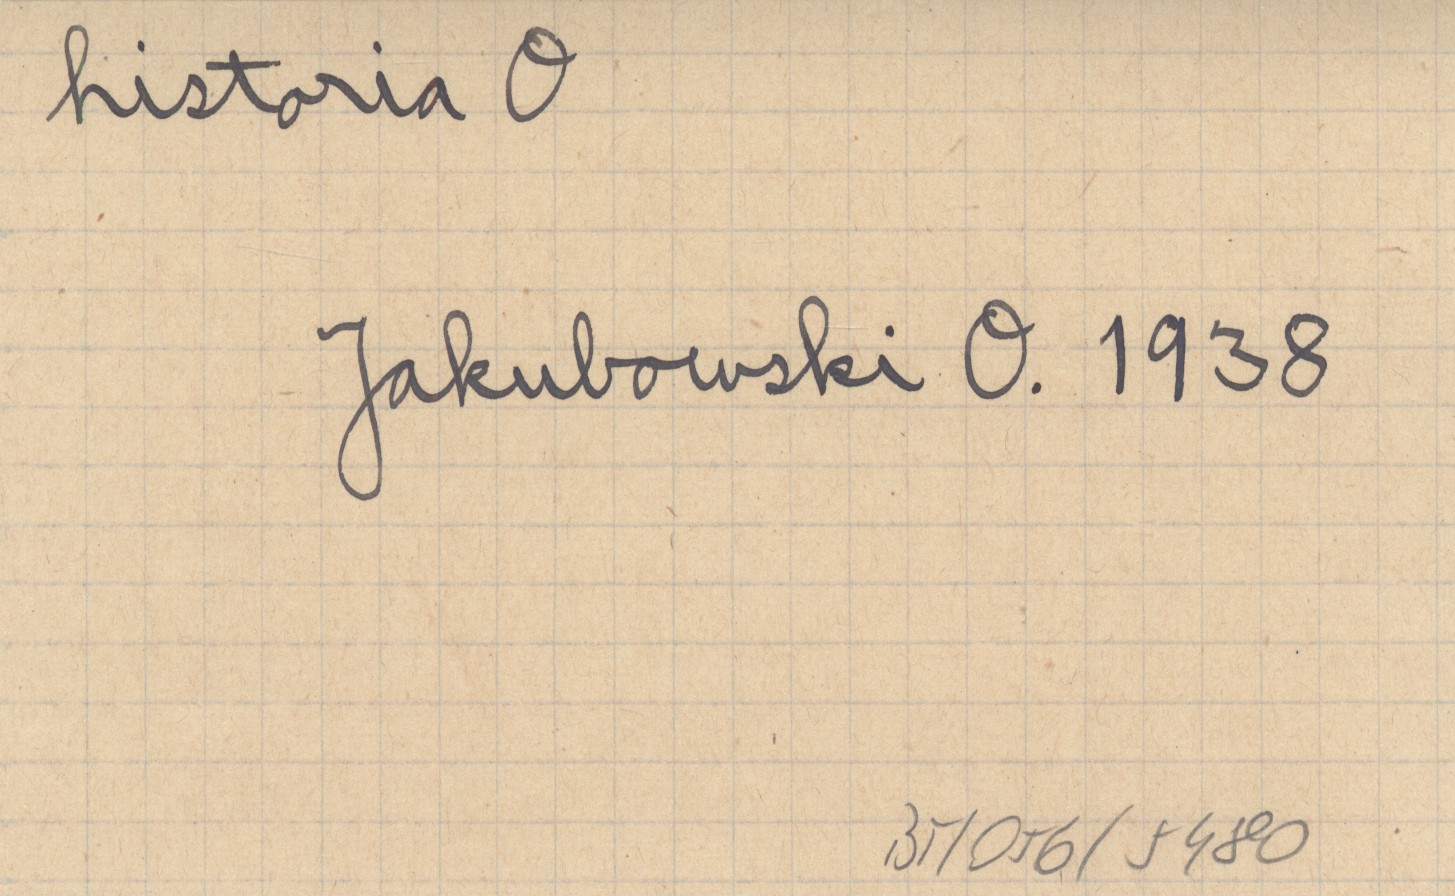 historia O
Jakubowski O. 1938
35/056/5480